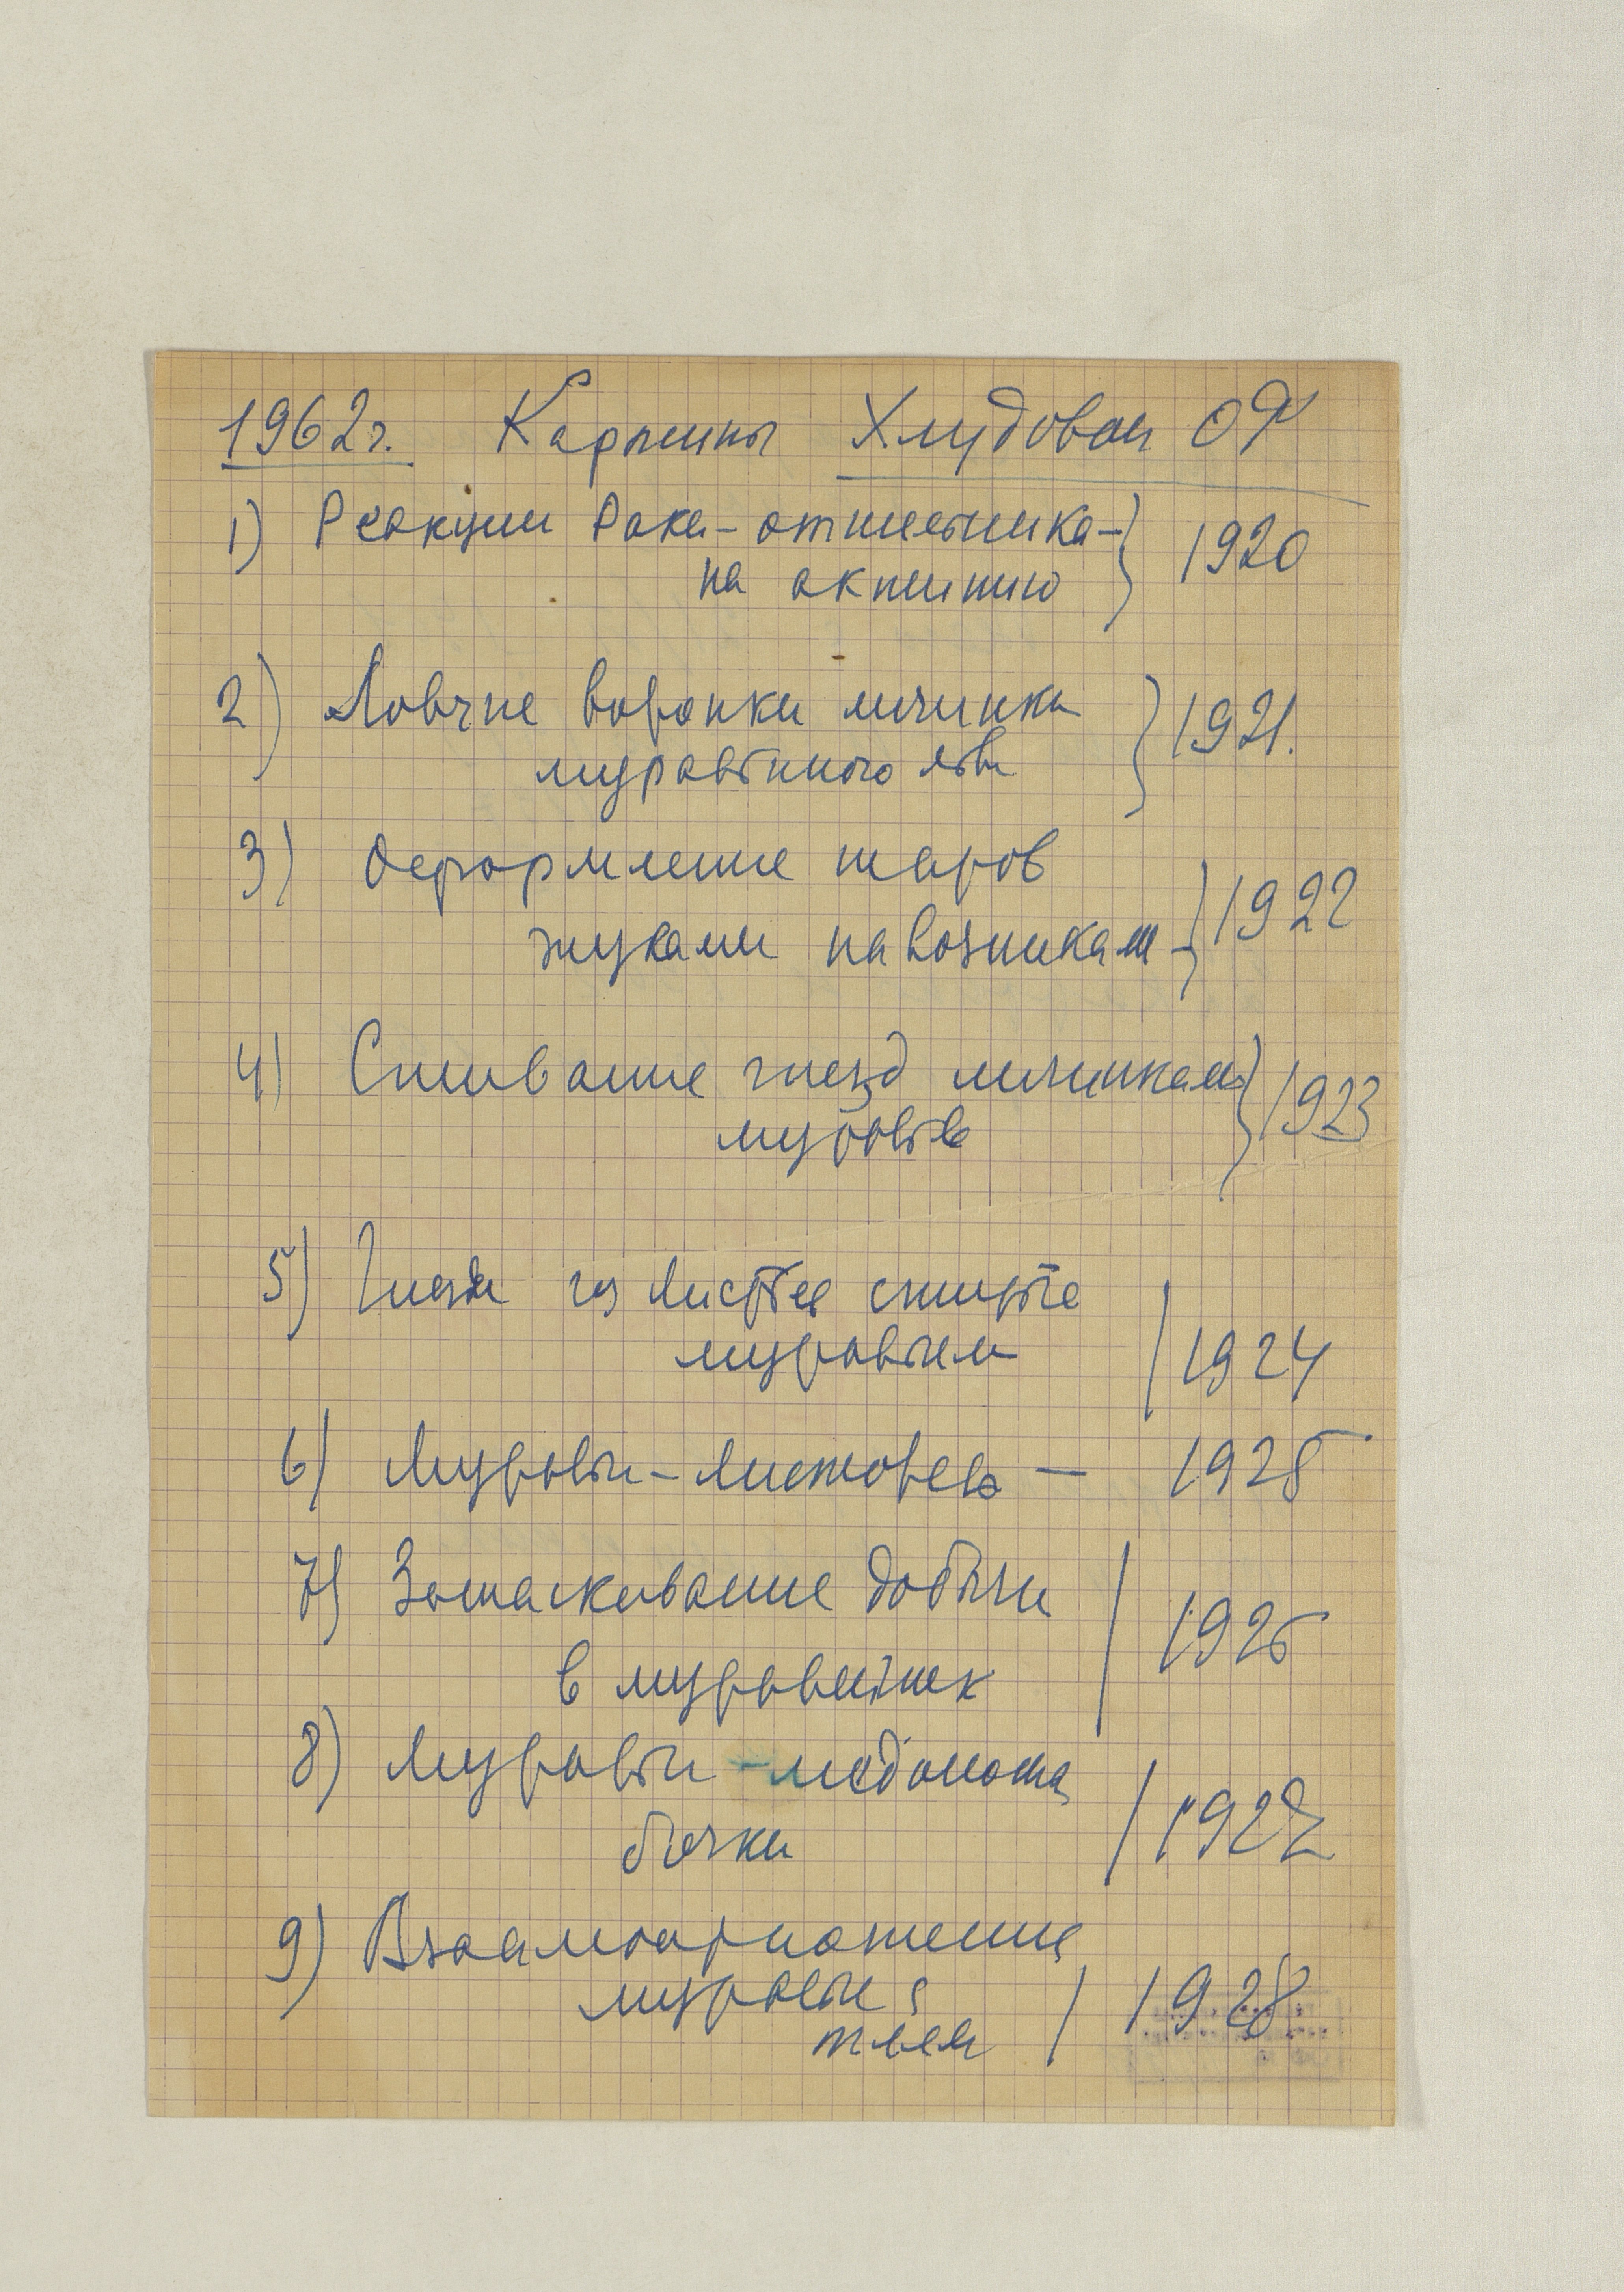 1962г. Картины Хлудовой ОФ
1) Реакции Рака-отшельника-
на актинию } 1920
2) Ловчие воронки личинки
муравьиного льва } 1921.
3) Оформление шаров
жуками навозниками } 1922
4) Сшивание гнезд личинками
муравьев } 1923
5) Гнезда из листьев сшитые
муравьем / 1924
6) Муравьи-листорезы — 1925
7) Затаскивание добычи
в муравейник / 1926
8) Муравьи-медоносы
бочки / 1927
9) Взаимоотношение
муравьи с
тлей / 1928